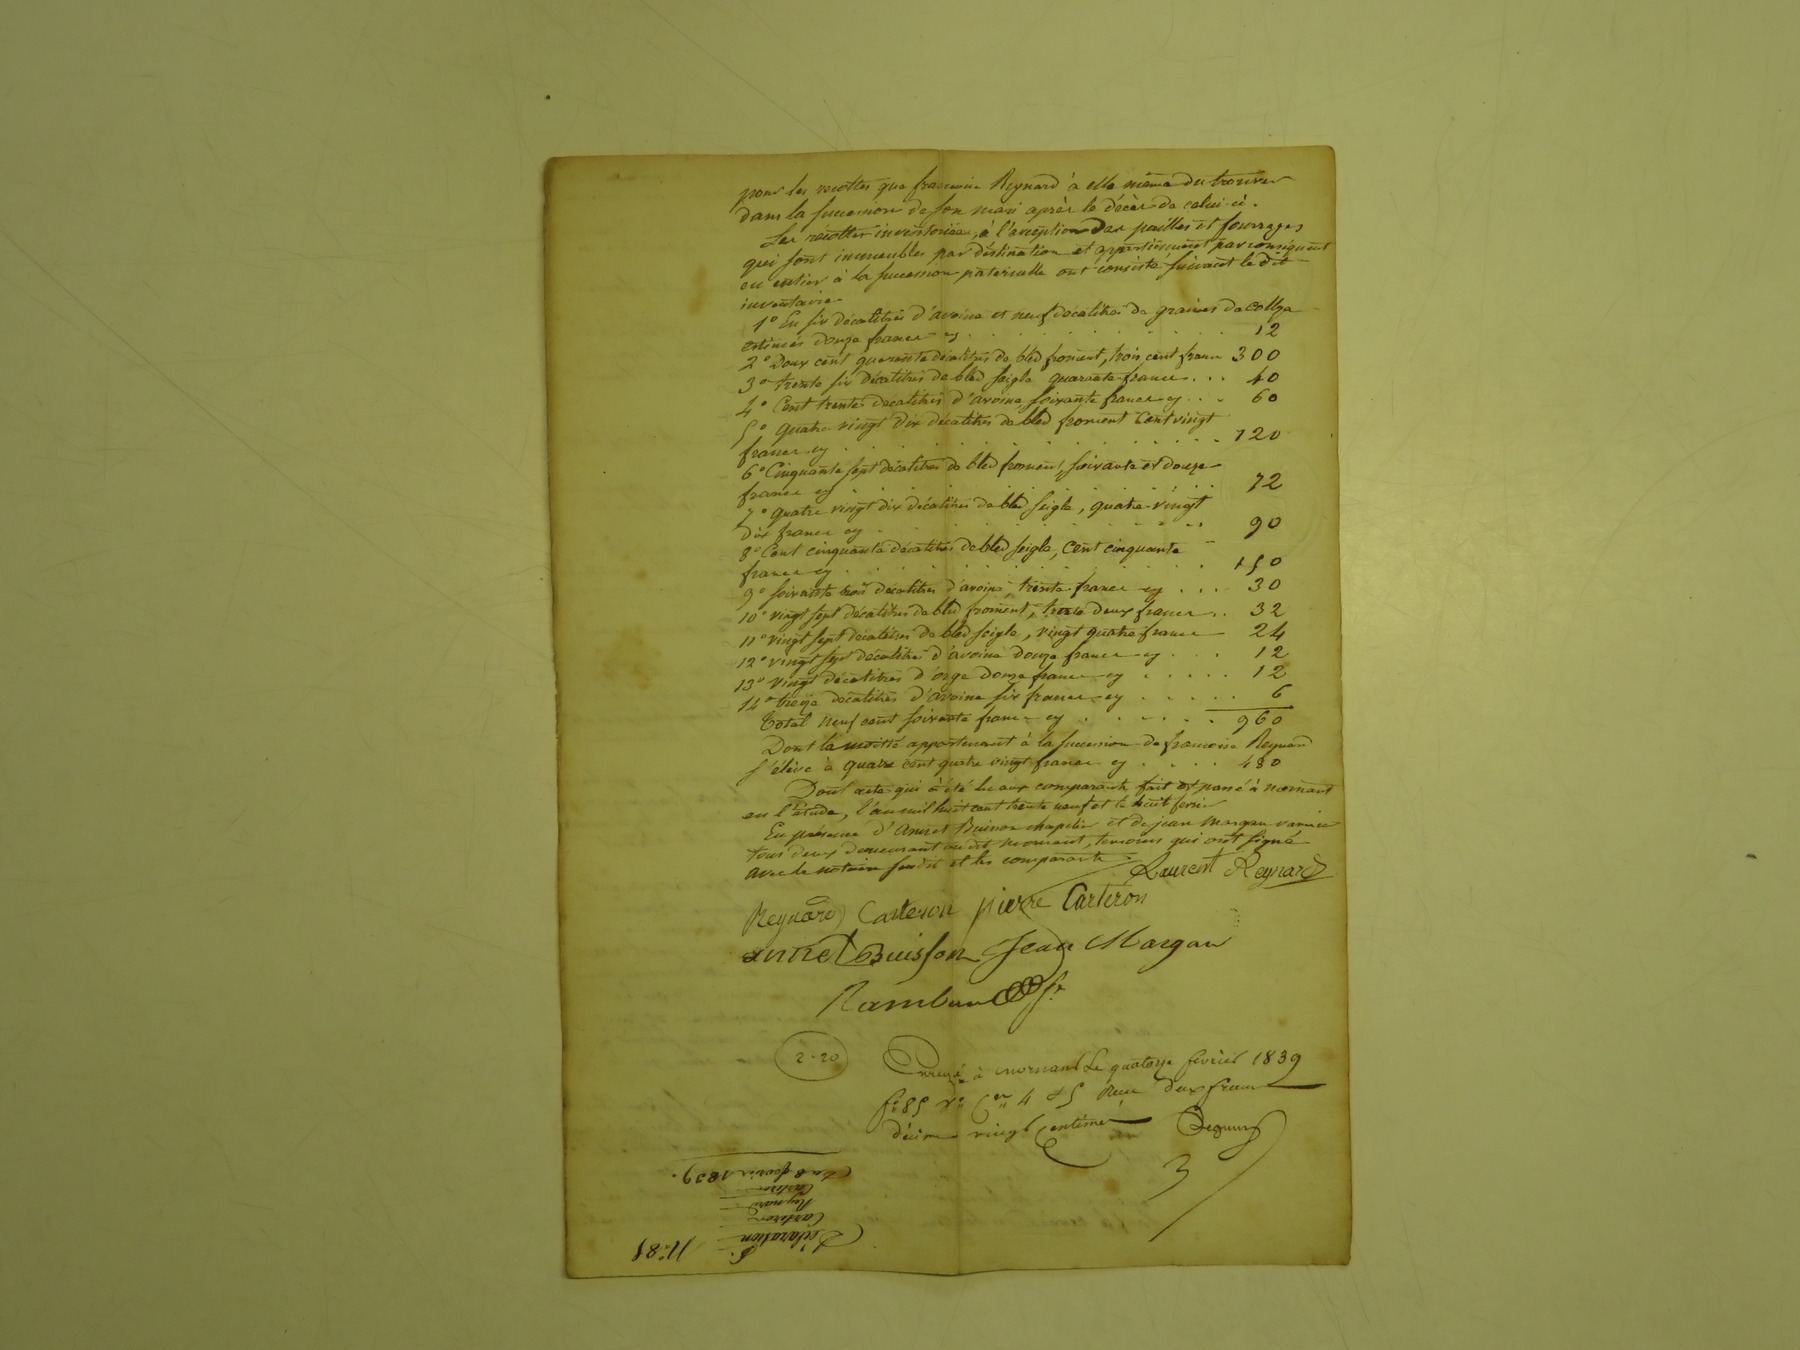 pour les recoltes que francoise Reynard à elle même du trouver
dans la succession de son mari après le décès de celui-ci.
Les récoltes inventoriées, à l'exception des pailles et fourrages
qui sont immeubles par déstination et appartiennent par conséquent
en entier à la succession paternelle ont consisté suivant le dit
inventaire
1° En six décalitres d'avoine et neuf decalitres de graines de collza
estimés douze francs cy . . . 12
2° Deux cent quarante décalitres de bled froment, trois cent francs 300
3° trente six décalitres de bled seigle quarante francs . . . 40
4° Cent trente decalitres d'avoine soixante francs cy . . . 60
5° quatre vingt dix décalitres de bled froment Cent vingt
francs cy . . . 120
6° Cinquante sept décalitres de bled froment, soixante et douze
francs cy . . . 72
7° quatre vingt dix décalitres de bled seigle, quatre-vingt
dix francs cy . . . 90
8° Cent cinquante décalitres de bled seigle, Cent cinquante
francs cy . . . 150
9° soixante trois décalitres d'avoine, trente francs cy . . . 30
10° vingt sept décalitres de bled froment, trente deux francs . . 32
11° vingt sept décalitres de bled seigle, vingt quatre francs 24
12° vingt six décalitres d'avoine douze francs cy . . . 12
13° vingt décalitres d'orge douze francs cy . . . . . 12
14° treize décalitres d'avoine six francs cy . . . . . 6
Total neuf cent soixante francs cy . . . . . . 960
Dont la moitié appartenant à la succession de francoise Reynard
s'élève à quatre cent quatre vingt francs cy . . . . . 480
Dont acte qui à été lu aux comparants fait et passé à mornant
en l'étude, l'an mil huit cent trente neuf et le huit fevrier
En présence d'Annet Buisson chapelier et de jean Margau
tous deux demeurant au dit mornant, temoins qui ont signé
avec le notaire susdit et les comparants Laurent Reynard
Reynard Carteron pierre Carteron
annet Buisson Jean Margau
2-20
Enregé à mornant Le quatorze fevrier 1839
f° 85 v° Cer 4 et 5 Recu deux francs
décime vingt Centimes
N° 85
Déclaration
Carteron
Reynard
Carteron
Du 8 fevrier 1839.